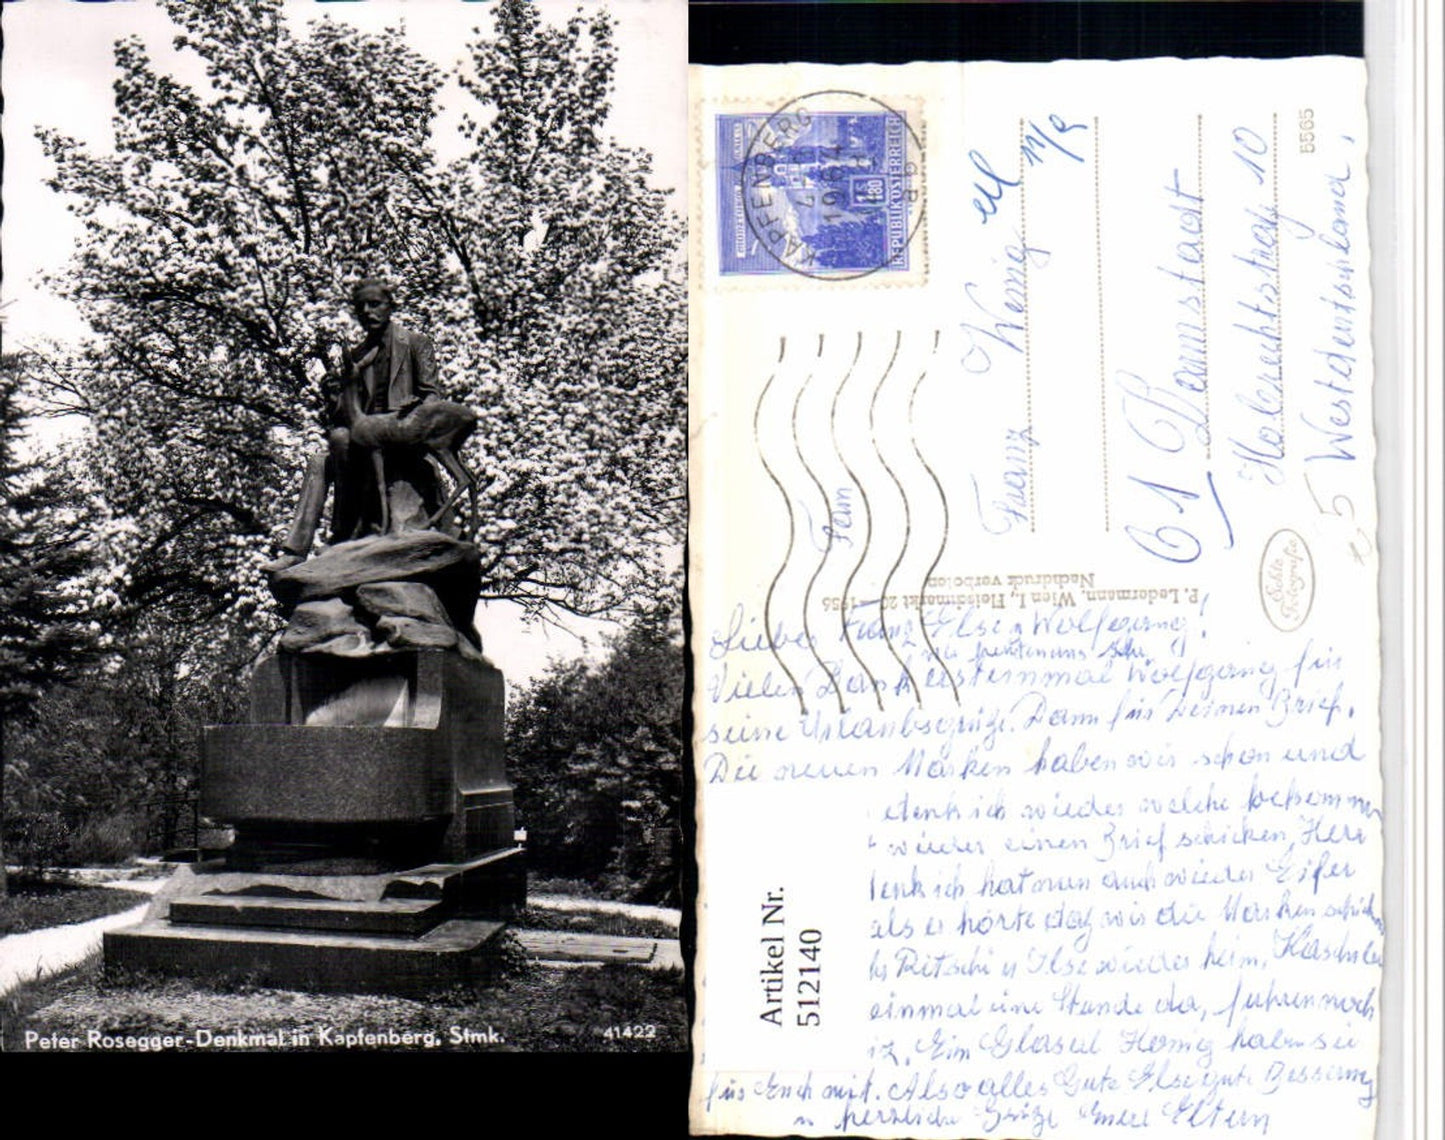 Peter Rosegger-Denkmal in Kapfenberg, Stmk.
41422
KAPFENBERG
1964
REPUBLIK OSTERREICH
S 1.80
Fam
Franz Wenig
61 Darmstadt
10
Westdeutschland.
5565
Echte
Fotografie
P. Ledermann, Wien I., Fleischmarkt 20 1956
Nachdruck verboten
Lieber Franz, Else u Wolfgang!
Vielen Dank erst einmal Wolfgang für
seine Urlaubsgrüße. Dann für Deinen Brief.
Die neuen Marken haben wir schon und
denk ich wieder welche bekommen
wieder einen Brief schicken, Herr
denk ich hat nun auch wieder Eifer
als er hörte daß wir die Marken
Ritschi u Ilse wieder heim,
einmal eine Stunde da, fuhren noch
Ein Glaserl Honig haben sie
für Euch mit. Also alles Gute Else gute Besserung
u herzliche Grüße Eure Eltern
Artikel Nr.
512140